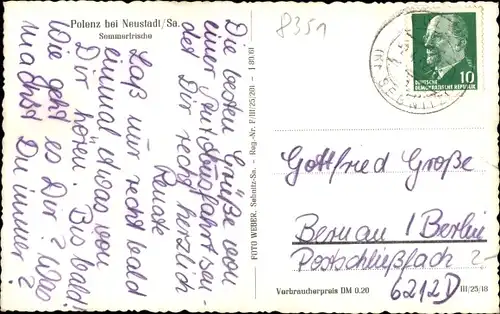 Polenz bei Neustadt/Sa.
Sommerfrische
8351
Die besten Grüße von
einer
det Dir recht herzlich
Laß mir recht bald
einmal etwas von
Dir hören. Bis bald!
Wie geht es Dir? Was
machst Du immer?
FOTO WEBER, Sebnitz-Sa. - Reg.-Nr. F/III/25/201 - 1 80/61
SEBNITZ
10
DEUTSCHE
DEMOKRATISCHE REPUBLIK
Gottfried Große
Bernau / Berlin
Postschließfach 2-
6212D
Verbraucherpreis DM 0.20
III/25/18